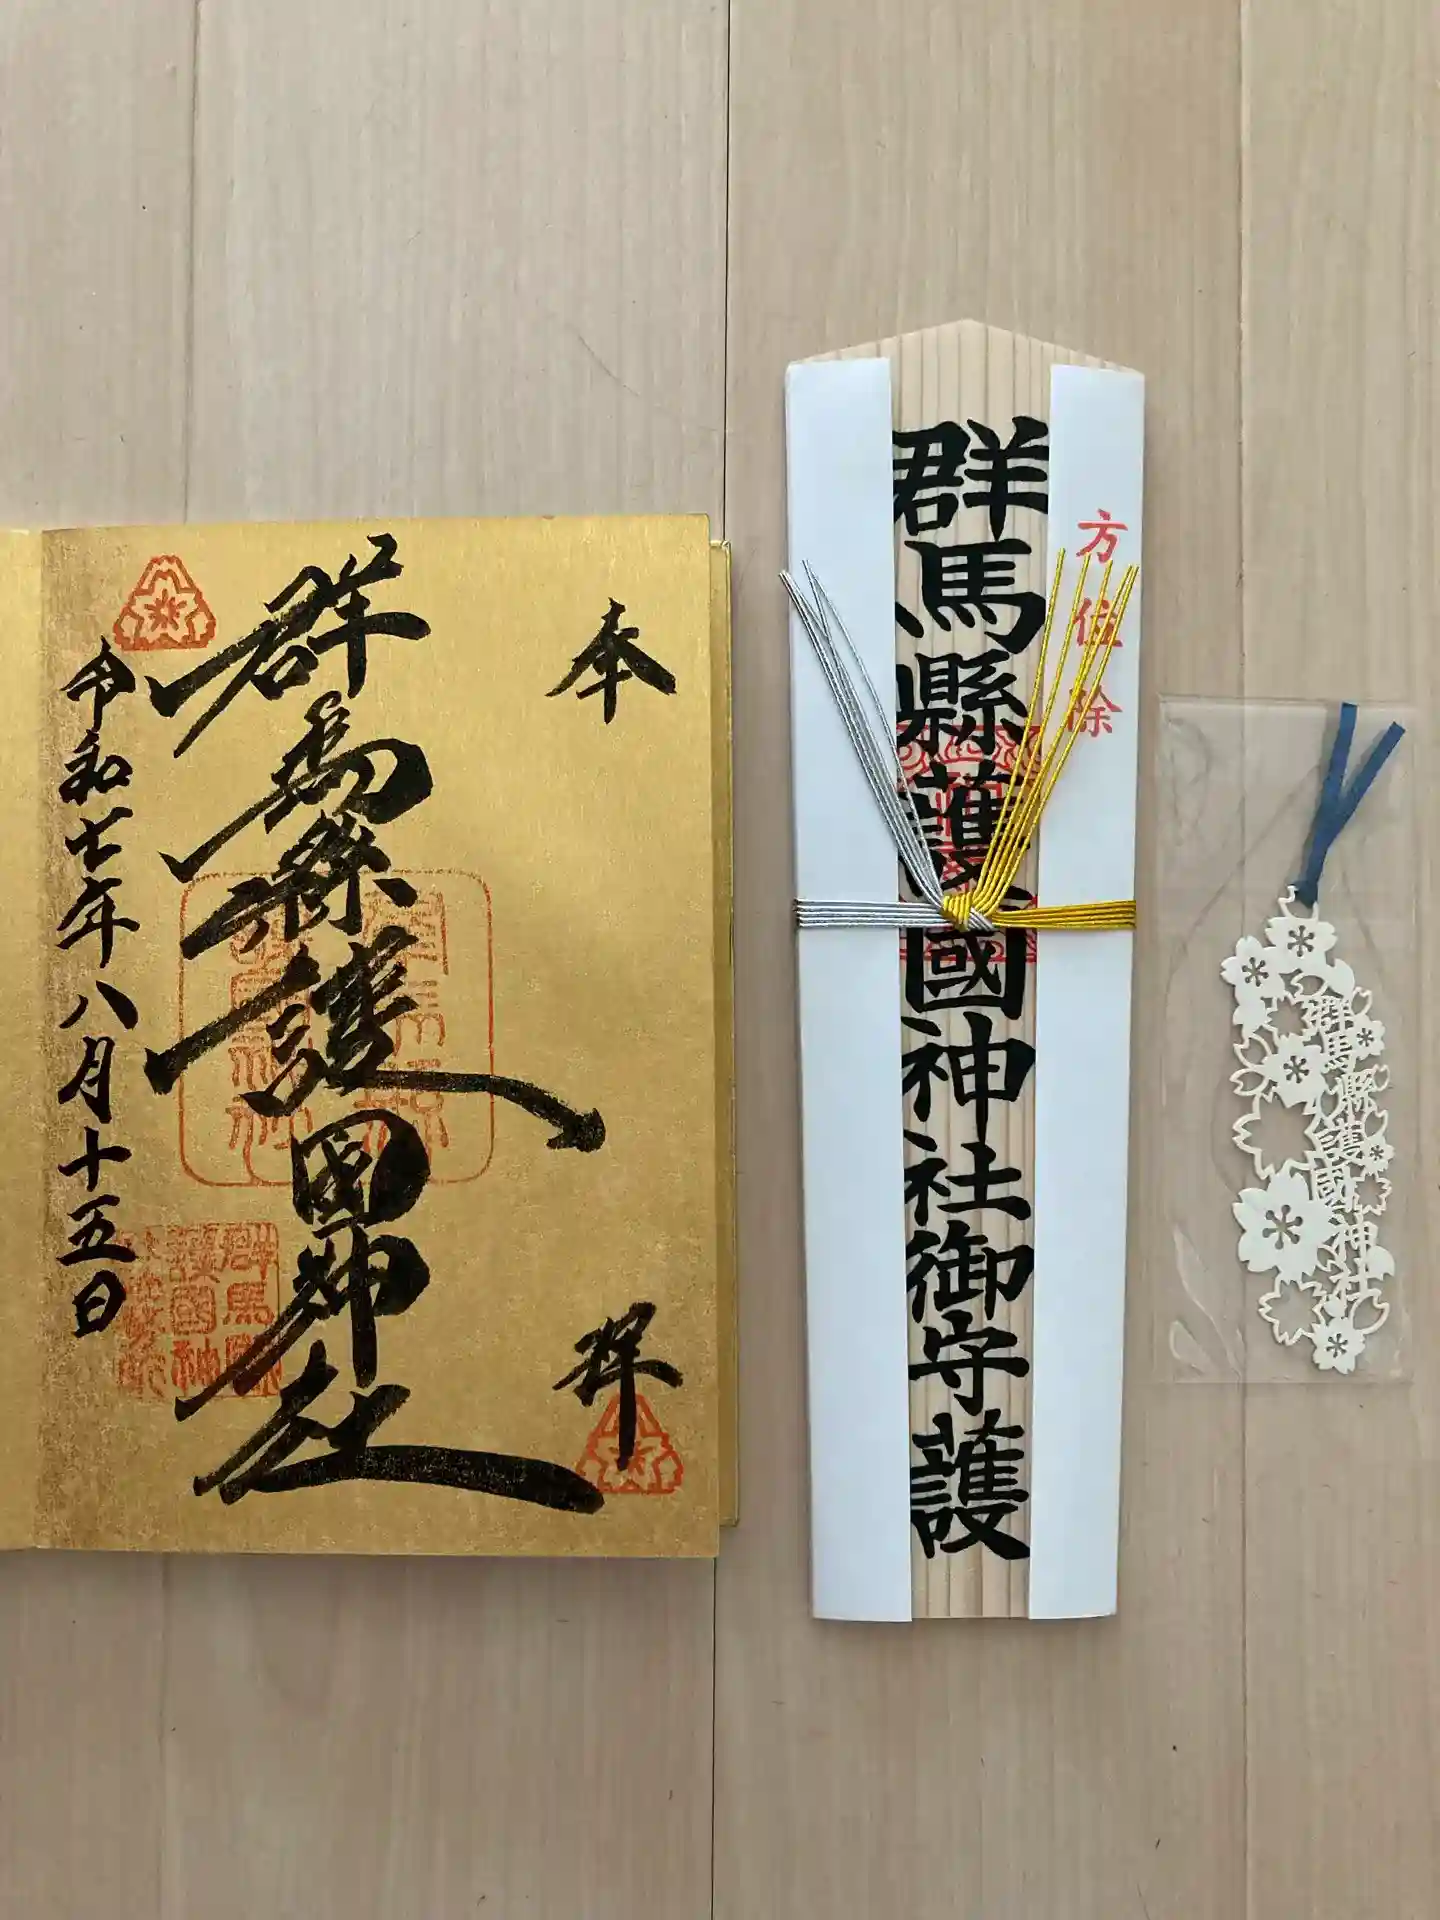 奉
拝
群馬縣護国神社
令和七年八月十五日
群馬縣護國神社御守護
方位除
群馬縣護國神社